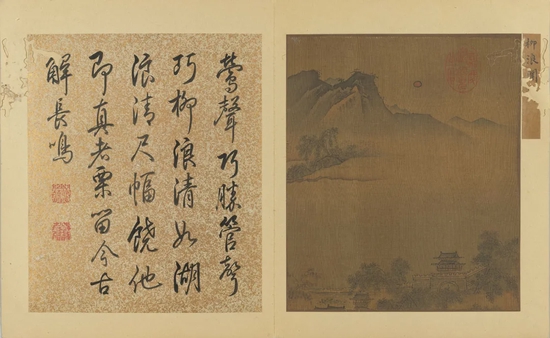 鶯聲巧勝管聲
巧柳浪清如湖
浪清尺幅饒他
即真者栗留今古
解長鳴
柳浪